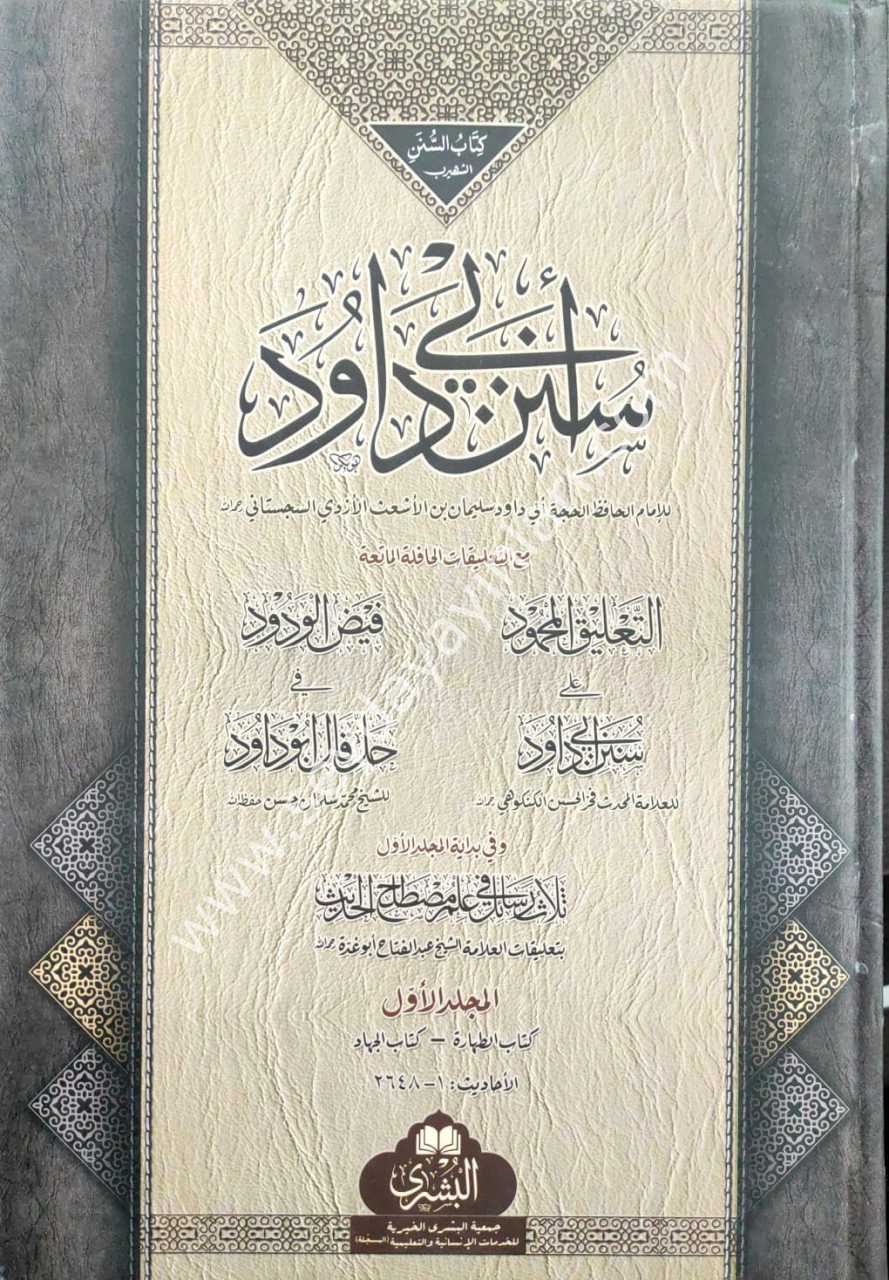 كِتَابُ السُّنَنِ
الشهير ب
سُنَن أَبِي دَاوُدَ
للإمام الحافظ الحجة أبي داود سليمان بن الأشعث الأزدي السجستاني رحمه الله
مع التعليقات الحافلة الماتعة
التَّعليق المحمُود
على
سُنَن أبي دَاوُد
للعلامة المحدث فخر الحسن الكنكوهي رحمه الله
فَيضُ الوَدُود
في
حَلّ قَالَ أبُو دَاوُد
للشيخ محمد سلمان حسن حفظه الله
وفي بداية المجلد الأول
ثلاث رسائل في علم مصطلح الحديث
بتعليقات العلامة الشيخ عبد الفتاح أبو غدة رحمه الله
المجلد الأوّل
كتاب الطهارة – كتاب الجهاد
الأحاديث: ١-٢٦٤٨
البُشرى
جمعية البشرى الخيرية
للخدمات الإنسانية والتعليمية (المسجّلة)